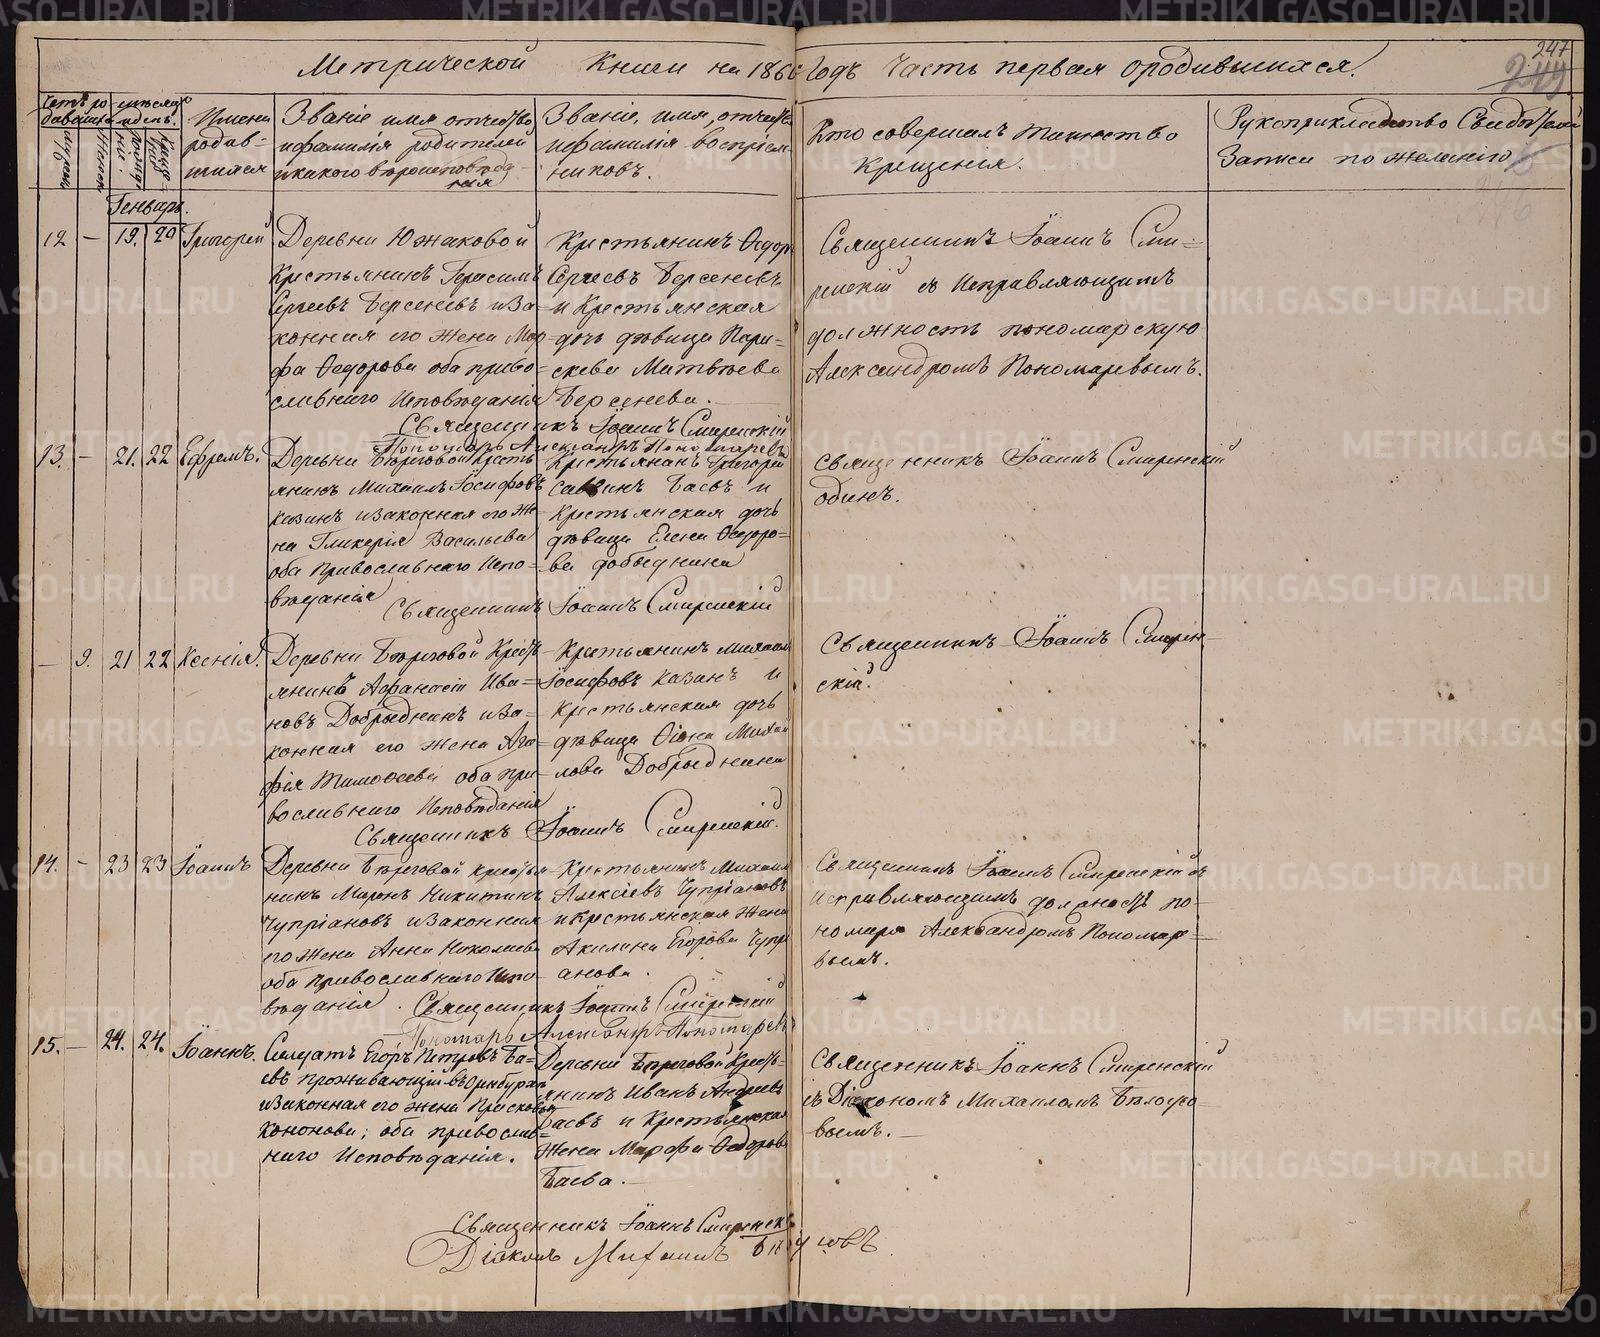 247
Метрической Книги на 1866 Годъ Часть первая ородившихся.
Имена родив-шихся
Званіе имя отчество ифамилія родителей икакого вѣроисповѣд-нія
Званіе, имя, отчество ифамилія воспріем-никовъ.
Кто совершалъ Таинство Крещенія.
Рукоприкладство Свидѣтелей Записи по желанію
Генварь.
12 — 19. 20 Григорей
Деревни Южаковой
Крестьянинъ Герасимъ
Сергеевъ Берсеневъ иза-
конная его жена Мар-
фа Ѳедорова оба право-
славнаго Исповѣданія
Крестьянинъ Ѳедоръ
Сергеевъ Берсеневъ
и Крестьянская
дочь дѣвица Пара-
скева Матвѣева
Берсенева.
Священникъ Іоаннъ Сми-
ренскій съ Исправляющимъ
должность пономарскую
Александромъ Пономаревымъ.
Священникъ Іоаннъ Смиренскій
Пономарь Александръ Пономаревъ
13. — 21. 22 Ефремъ.
Деревни Береговой Кресть
янинъ Михаилъ Іосифовъ
Казинъ изаконная его Же-
на Гликерія Васильева
оба православнаго Испо-
вѣданія
Крестьянинъ Григорей
Саввинъ Баевъ и
Крестьянская дочь
дѣвица Елена Ѳедоро-
ва добыднина
Священникъ Іоаннъ Смиренскій
одинъ.
Священникъ Іоаннъ Смиренскій
— 9. 21 22 Ксенія.
Деревни Береговой Кресть
янинъ Афанасій Ива-
новъ Добрыднинъ иза-
конная его жена Ага-
фія Тимоѳеева оба пра-
вославнаго Исповѣданія
Крестьянинъ Михаилъ
Іосифовъ Казинъ и
Крестьянская дочь
дѣвица Ѳіона Михай
лова Добрыднина
Священникъ Іоаннъ Смирен-
скій.
Священникъ Іоаннъ Смиренскій.
14. — 23 23 Іоаннъ
Деревни Береговой крестья
нинъ Миронъ Никитинъ
Чупріановъ изаконная
его жена Анна Николаева
оба православнаго Испо-
вѣданія.
Крестьянинъ Михаилъ
Алексіевъ Чупріановъ
и Крестьянская жена
Акилина Егорова Чупрі
анова.
Священникъ Іоаннъ Смиренскій съ
исправляющимъ должность по-
номаря Александромъ Пономаре-
вымъ.
Священникъ Іоаннъ Смиренскій
Пономарь Александръ Пономаревъ
15. — 24. 24. Іоаннъ.
Солдатъ Егоръ Петровъ Ба-
евъ проживающій
изаконная его жена Прасковья
Кононова; оба православ-
наго Исповѣданія.
Деревни Береговой Кресть-
янинъ Иванъ Андреевъ
Баевъ и Крестьянская
жена Марфа Ѳедорова
Баева.
Священникъ Іоаннъ Смиренскій
съ Діакономъ Михаиломъ
вымъ.
Священникъ Іоаннъ Смиренскій
Діаконъ Михаилъ
METRIKI.GASO-URAL.RU